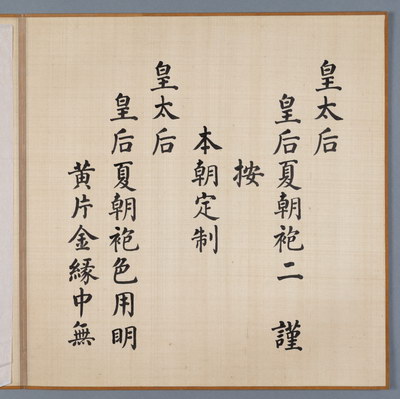 皇太后
皇后夏朝袍二 謹
按
本朝定制
皇太后
皇后夏朝袍色用明
黄片金縁中無